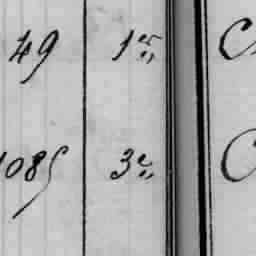 49 1er C
1085 3e C